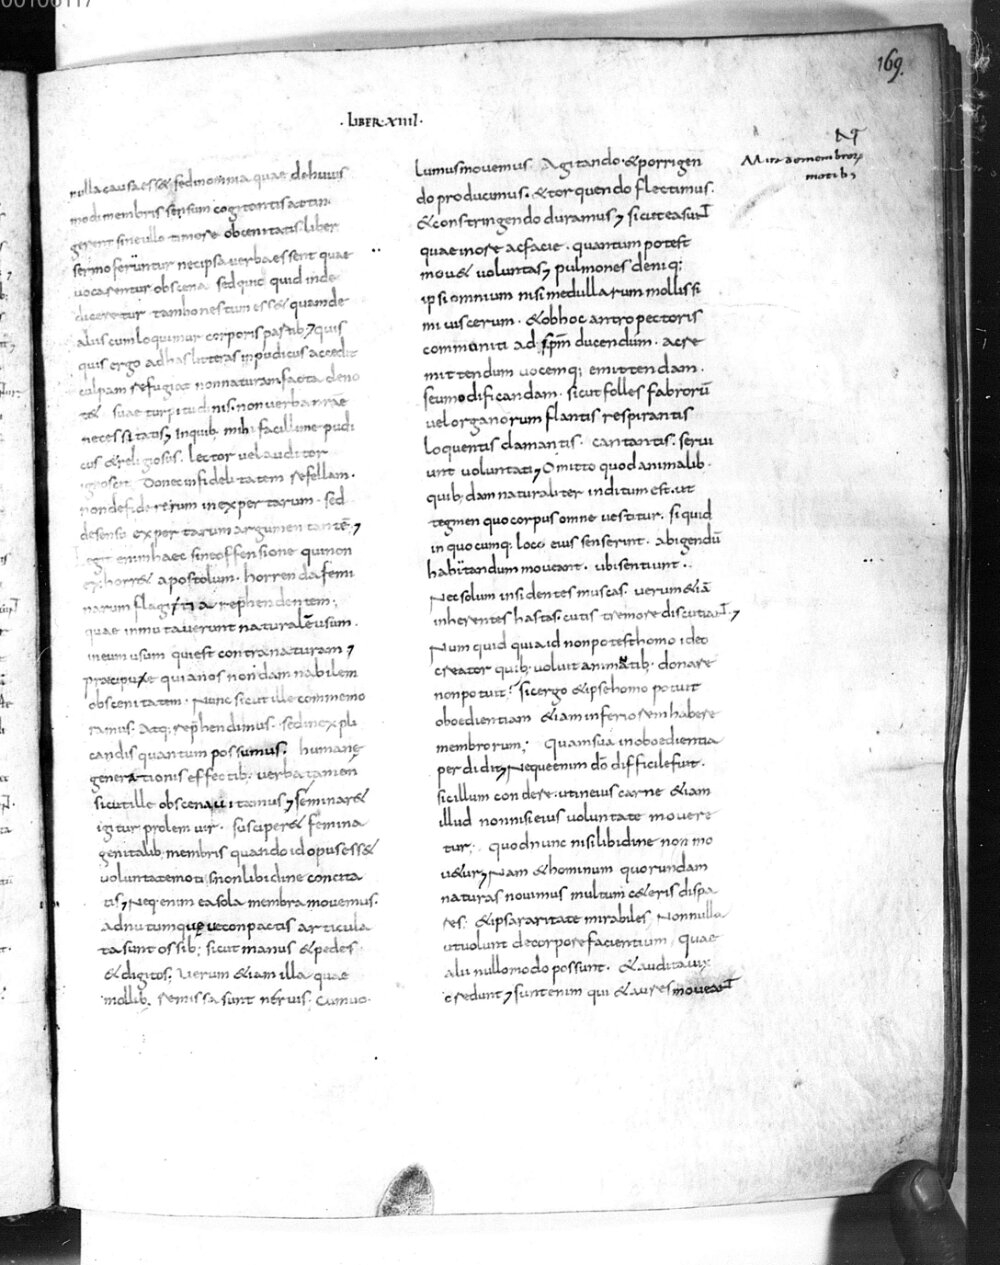 169.
·LIBER·XIIII·
nulla causa esset sed in omnia quae de huius
modi membris sensum cogitantis adtin
gerent sine ullo timore obscenitatis. liber
sermo feruntur nec ipsa verba essent quae
vocarentur obscena. sed quic quid inde
diceretur tam honestum esset quam de
aliis cum loquimur corporis partib; quis
quis ergo ad has litteras inpudicus accedit
culpam refugiat non naturam facta deno
tet suae turpitudinis. non verba nrae
necessitatis, In quib; mihi facillime pudi
cus & religiosus. lector vel auditor
ignoscit. Donec infidelitatem refellam.
non de fide rerum inexpertarum. sed
de sensu expertarum argumentantē,
Legit enim haec sine offensione qui non
exhorret apostolum. horrenda femi
narum flagitia rephendentem;
quae inmutaverunt naturalē usum.
in eum usum qui est contra naturam,
praecipuae quia nos non damnabilem
obscenitatem. Nunc sicut ille commemo
ramus. Atq; rephendimus. sed in expli
candis quantum possumus. humanę
generationis effectib; verba tamen
sicut ille obscena vitamus, seminaret
igitur prolem vir. susciperet femina
genitalib; membris quando id opus esset
voluntate moti s non libidine concita
tis, Neq; enim ea sola membra movemus.
ad nutum quę ut conpactis articula
ta sunt ossib; sicut manus & pedes.
& digitos; Verum & iam illa quae
mollib; remissa sunt nervis; Cum vo
lumus movemus. Agitando & porrigen
do producimus. & torquendo flectimus.
& constringendo duramus, sicut ea sunt
quae in ore ac facie. quantum potest
movet voluntas, pulmones deniq;
ipsi omnium nisi medullarum mollissi
mi viscerum. & ob hoc antro pectoris
communiti ad spm ducendum. ac re
mittendum vocemq; emittendam.
seu modificandam. sicut folles fabrorū
vel organorum flantis respirantis
loquentis clamantis. cantantis. servi
unt voluntati, Omitto quod animalib;
quib; dam naturaliter inditum est. ut
tegmen quo corpus omne vestitur. si quid
in quocumq; loco eius senserint. abigendū
habitandum moveant. ubi sentiunt.
Nec solum insidentes muscas. verum & iā
inherentes hastas. cutis tremore discutiant,
Num quid quia id non potest homo ideo
creator quib; voluit animatib; donare
non potuit? sic ergo & ipse homo potuit
oboedientiam & iam inferiorem habere
membrorum; Quam sua inoboedientia
perdidit, Neque enim dō difficile fuit.
sic illum condere. ut in eius carne & iam
illud non nisi eius voluntate movere
tur; quod nunc nisi libidine non mo
vetur, Nam & hominum quorundam
naturas novimus multum ceteris dispa
res. & ipsa raritate mirabiles, Nonnulla
ut volunt de corpore facientium, quae
alii nullo modo possunt. & audita vix
credunt, sunt enim qui & aures moveant
Mira de membror
motib;